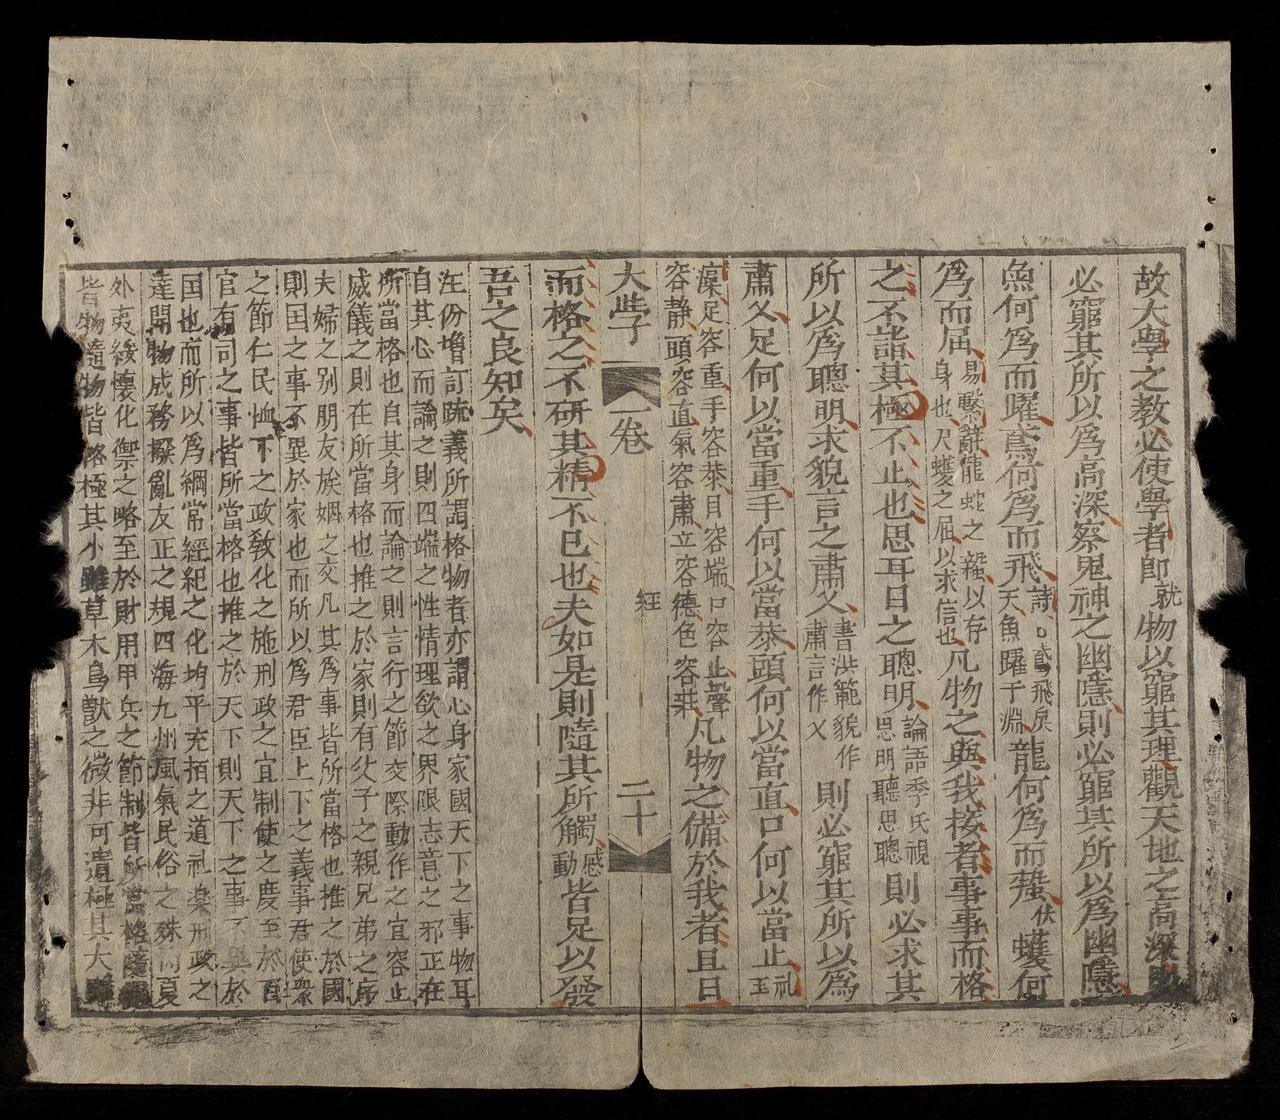 故大學之教必使學者即就物以窮其理觀天地之高深則
必窮其所以爲高深察鬼神之幽隱則必窮其所以爲幽隱
魚何爲而躍鳶何爲而飛詩〇鳶飛戾天魚躍于淵龍何爲而蟄伏蠖何
爲而屈易繫辭龍蛇之蟄以存身也尺蠖之屈以求信也凡物之與我接者事事而格
之不詣其極不止也思耳目之聰明論語季氏視思明聽思聰則必求其
所以爲聰明求貌言之肅乂書洪範貌作肅言作乂則必窮其所以爲
肅乂足何以當重手何以當恭頭何以當直口何以當止礼玉
藻足容重手容恭目容端口容止聲容静頭容直氣容肅立容德色容莊凡物之備於我者且日
大斈 一卷 経 二十
而格之不研其精不已也夫如是則隨其所觸感動皆足以發
吾之良知矣
汪份增訂疏義所謂格物者亦謂心身家國天下之事物耳
自其心而論之則四端之性情理欲之界限志意之邪正在
所當格也自其身而論之則言行之節交際動作之宜容止
威儀之則在所當格也推之於家則有父子之親兄弟之序
夫婦之别朋友族姻之交凡其爲事皆所當格也推之於國
則国之事不異於家也而所以爲君臣上下之義事君使衆
之節仁民恤下之政敎化之施刑政之宜制使之度至於百
官有司之事皆所當格也推之於天下則天下之事不異於
国也而所以爲綱常經紀之化均平充拓之道礼楽刑政之
達開物成務撥亂反正之規四海九州風氣民俗之殊
外夷綏懷化禦之略至於財用甲兵之節制皆所當格隨
皆物隨物皆格極其小雖草木鳥獸之微非可遺極其大雖